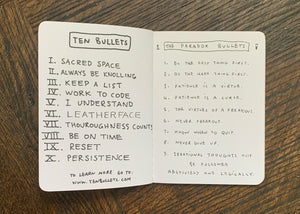 TEN BULLETS
I. SACRED SPACE
II. ALWAYS BE KNOLLING
III. KEEP A LIST
IV. WORK TO CODE
V. I UNDERSTAND
VI. LEATHERFACE
VII. THOUROUGHNESS COUNTS
VIII. BE ON TIME
IX. RESET
X. PERSISTENCE
TO LEARN MORE GO TO:
WWW.TENBULLETS.COM
THE PARADOX BULLETS
1. DO THE EASY THING FIRST.
2. DO THE HARD THING FIRST.
3. PATIENCE IS A VIRTUE.
4. PATIENCE IS A CURSE.
5. THE VIRTUES OF A
6. NEVER FREAKOUT.
7. KNOW WHEN TO QUIT.
8. NEVER GIVE UP.
9. IRRATIONAL THOUGHTS MUST
BE FOLLOWED
ABSOLUTELY AND LOGICALLY.